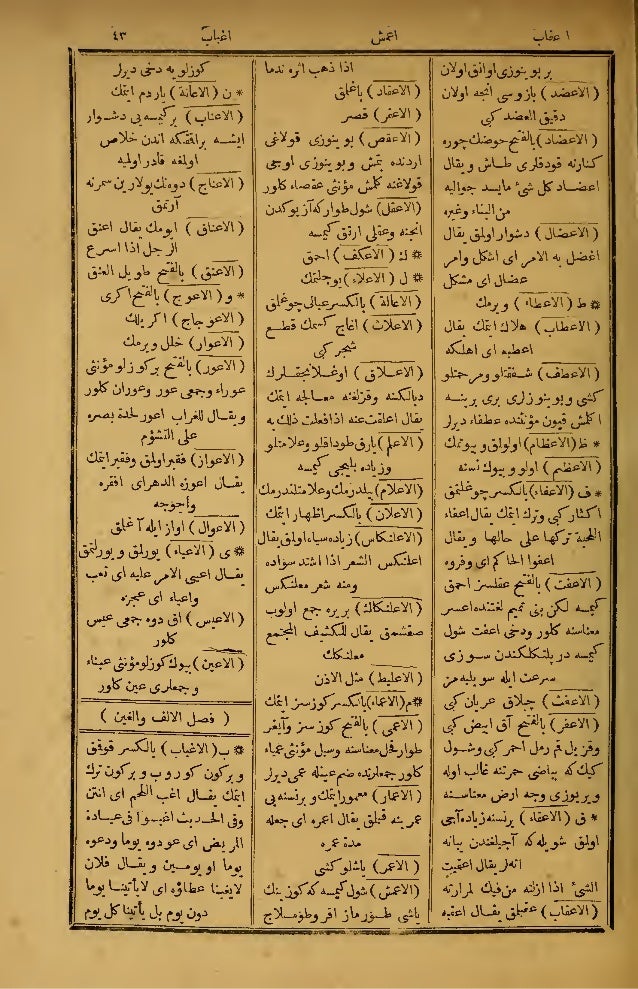 اعقاب
اعمش
اغباب
٤٣
بر بوينوزى اوانق اولان
( الاعضد ) بازوسى انجه اولان
دقيق العضد كبى
( الاعضاد ) بالفتح حوضك چوره
كنارنه قودقلرى طاش ويقال
اعضاد كل شئ مايسد حواليه
من البناء وغيره
( الاعضال ) دشوار اولمق يقال
اعضل به الامر اى اشكل وامر
عضال اى مشكل
* ط ( الاعطاء ) ويرمك
( الاعطاب ) هلاك ايتمك يقال
اعطبه اى اهلكه
( الاعطف ) شفقتلو ومرحمتلو
كشى وبوينوزلرى برى برينه
اكلمش قيون مؤنثنده عطفاء ديرلر
* ظ ( الاعظام ) اولولق وبيوتمك
( الاعظم ) اولو وبيوك نسنه
* ف ( الاعفاء ) بالكسر چوغلتمق
اكثار كبى وترك ايتمك يقال اعفاء
اللحية تركها على حالها ويقال
اعفوا الحاكم اى وفروه
( الاعفت ) بالفتح عقلسز احمق
كيمسه لكن بنى تميم لغتنده اعسر
معناسنه كلور ودخى اعفت شول
كيمسه در يلتكلكندن سوزى
سرعت ايله سويليه من
( الاعفث ) چپلاق عريان كبى
( الاعفر ) بالفتح آق ابيض كبى
وقزيل قم رمل احمر كبى وشول
كيك كه بياضى حمرتنه غالب اوله
ويريوزى وجه ارض معناسنه
* ق ( الاعقاء ) برنسنه زياده آجى
اولمق شويله كه آجيلغندن يبانه
اتهلر يقال اعقيت
الشئ اذا ازلته من فيك لمرارته
( الاعقاب ) عقبلق يقال اعقبه
اذا ذهب اثره ندما
( الاعقاد ) باغلمق
( الاعقر ) قصر
( الاعقص ) بوينوزى قولاغى
اردنده بتمش وبوينوزى اوجى
قولاغنه كلمش مؤنثى عقصاء كلور
( الاعقل ) شول طوار كه آز يوكدن
انجنه وعقلى ارتق كيمسه
* ك ( الاعكف ) احمق
* ل ( الاعلاء ) يوجلتمك
( الاعالة ) بالكسر عيالى چوغلمق
( الاعلاث ) اغاج كسمك قطع
شجر كبى
( الاعلاق ) اوغلانجقلرك
ديالكسنه وقزلغنه معالجه ايتمك
يقال اعلاقت عنه اذا فعلت ذلك به
( الاعلم ) يارق طوداقلو وعلامتلو
وزياده بليجى كيمسه
( الاعلام ) بيلدرمك وعلامتلندرمك
( الاعلان ) بالكسر اظهار ايتمك
( الاعلنكاس ) زياده سياه اولمق يقال
اعلنكس الشعر اذا اشتد سواده
ومنه شعر معلنكس
( الاعلنكاك ) بربره جمع اولوب
صقشمق يقال للكثيف المجتمع
معلنكك
( الاعليط ) مثل الاذن
* م ( الاعماء ) بالكسر كورسز ايتمك
( الاعمى ) بالفتح كورسز وآيغر
طوار فحل معناسنه وسيل مؤنثى عمياء
كلور جمعلرنده ضم عينله عمى ديرلر
( الاعمار ) معمور ايتمك وبرنسنه يى
عمرينه قيلمق يقال اعمره اى جعله
مدة عمره
( الاعمر ) ياشلو كشى
( الاعمش ) شول كيمسه كه كوزينك
ياشى طورماز اقر وطومسلاج
كوزلويه دخى ديرلر
* ن ( الاعانة ) ياردم ايتمك
( الاعنات ) بر كيمسه يى دشوار
ايشه براقمق كه اندن خلاص
اولمغه قادر اوليه
( الاعناج ) دوه نك يولارين سمرنه
آرتمق
( الاعناق ) ايومك يقال اعنق
الرجل اذا اسرع
( الاعنق ) بالفتح طويل العنق
* و ( الاعوج ) بالفتح اكرى
( الاعوجاج ) اكريلك
( الاعوار ) خلل ويرمك
( الاعور ) بالفتح بر كوزلو مؤنثى
عوراء وجمعى عور وعوران كلور
ويقال للغراب اعور لحدة بصره
على التشؤم
( الاعواز ) فقير اولمق وفقير ايتمك
يقال اعوزه الدهر اى افقره
واحوجه
( الاعوال ) اواز ايله آغلمق
* ى ( الاعياء ) يورلمق ويورلتمق
يقال اعيى الامر عليه اى تعب
واعياه اى عجزه
( الاعيس ) آق دوه جمعى عيس
كلور
( الاعين ) بيوك كوزلو مؤنثى عيناء
وجمعلرى عين كلور
( فصل الالف والغين )
* ب ( الاغباب ) بالكسر قوقمق
وبركون كوروب وبركون ترك
ايتمك يقال اغب اللحم اى انتن
وفى الحديث اغبوا فى عيادة
المريض اى عودوه يوما ودعوه
يوما او يومين ويقال فلان
لايغبنا عطاؤه اى لايأتينا يوما
دون يوم بل يأتينا كل يوم